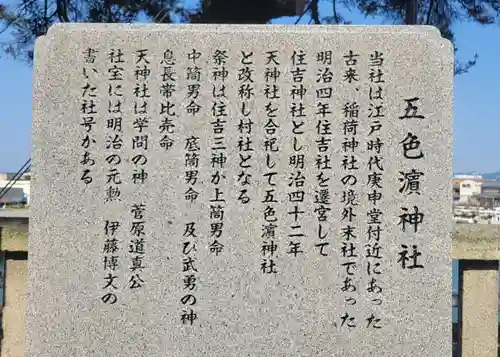 五色濱神社
当社は江戸時代庚申堂付近にあった
古来、稲荷神社の境外末社であった
明治四年住吉社を遷宮して
住吉神社とし明治四十二年
天神社を合祀して五色濱神社
と改称し村社となる
祭神は住吉三神か上筒男命
中筒男命 底筒男命 及び武勇の神
息長帯比売命
天神社は学問の神 菅原道真公
社宝には明治の元勲 伊藤博文の
書いた社号かある